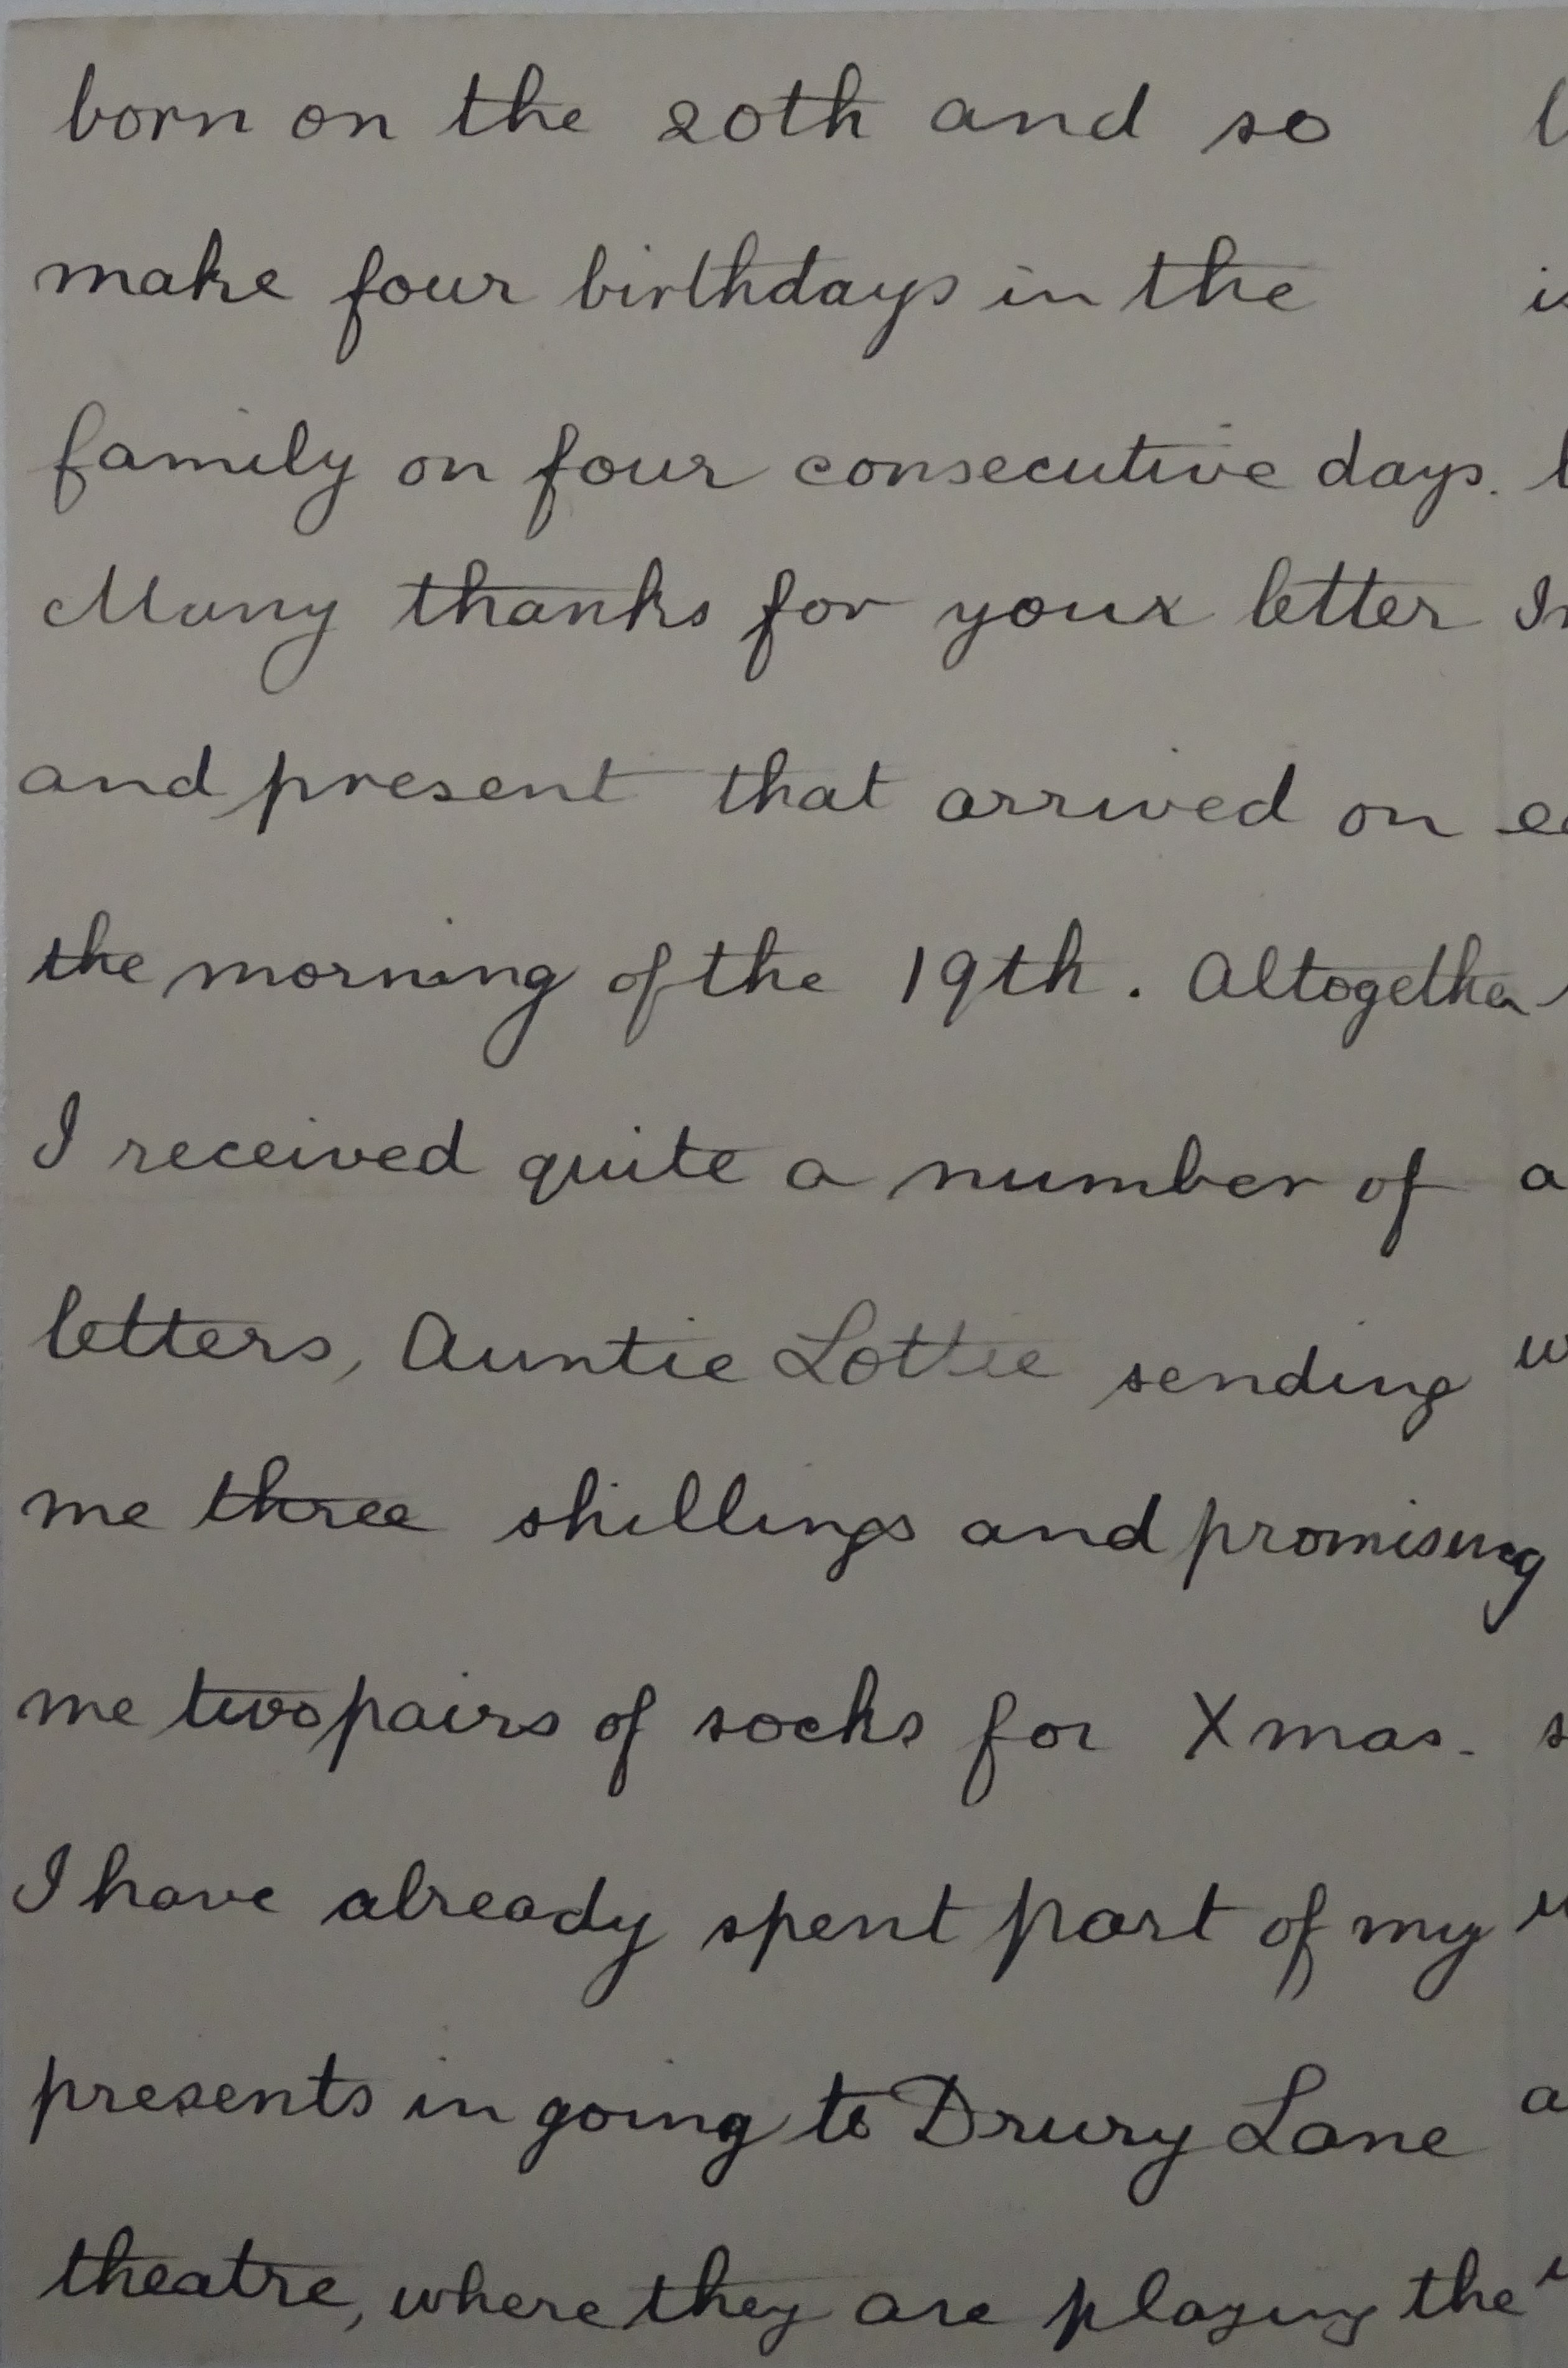 born on the 20th and so
make four birthdays in the
family on four consecutive days.
Many thanks for your letter
and present that arrived on
the morning of the 19th. Altogether
I received quite a number of
letters, Auntie Lottie sending
me three shillings and promising
me two pairs of socks for Xmas.
I have already spent part of my
presents in going to Drury Lane
theatre, where they are playing the